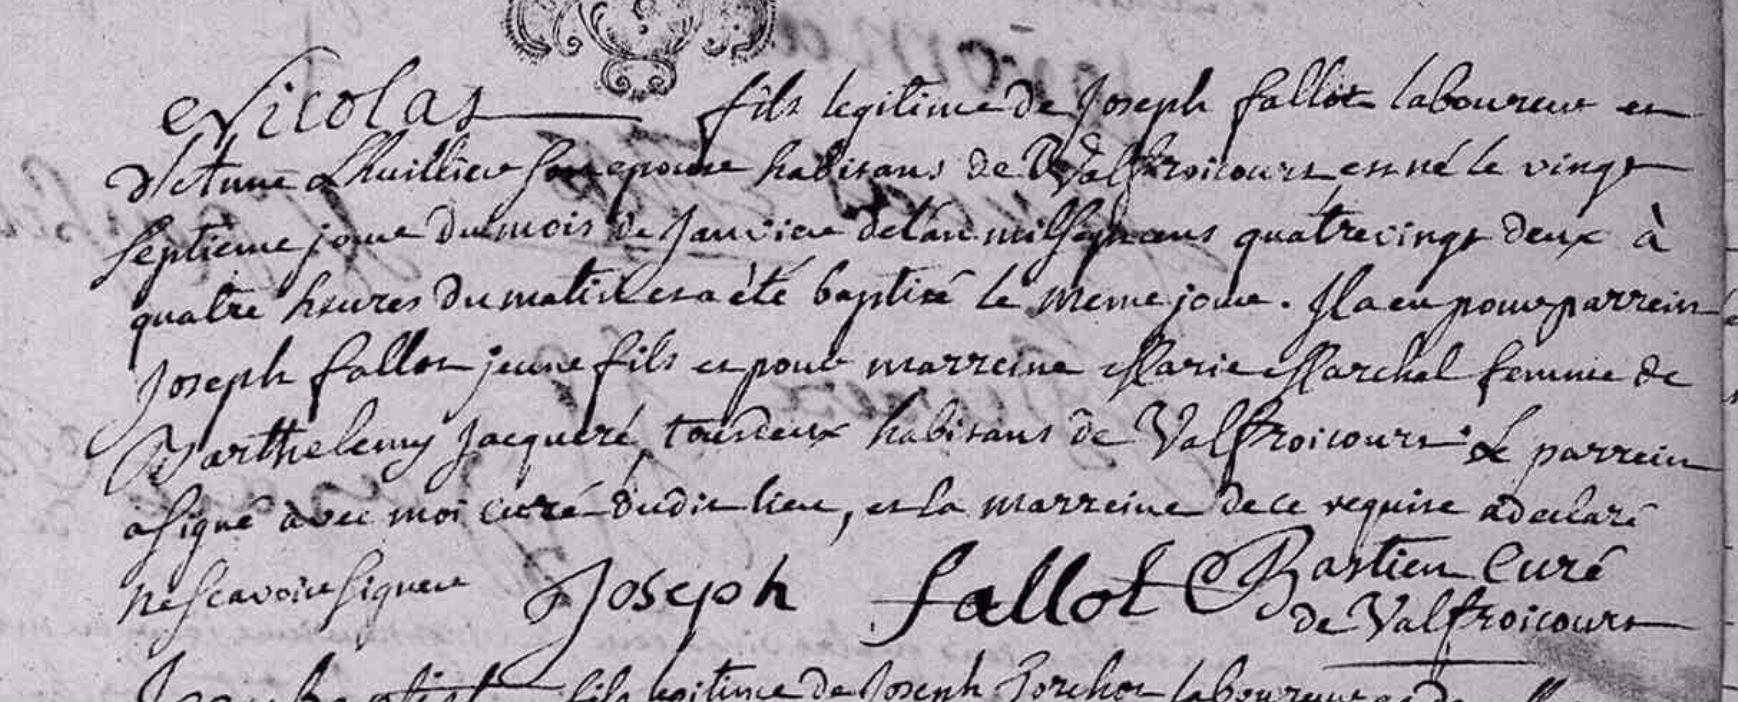 Nicolas fils legitime de Joseph fallot laboureur et
d'Anne Lhuillier son epouse habitans de Valfroicourt est né le vingt
septieme jour du mois de Janvier de l'an mil sept cens quatre vingt deux à
quatre heures du matin et a été baptisé le meme jour. Il a eu pour parrein
Joseph fallot jeune fils et pour marreine Marie Marchal femme de
Barthelemy Jacqueré, tous deux habitans de Valfroicourt. Le parrein
a signé avec moi curé dudit lieu, et la marreine de ce requise a declaré
ne scavoir signer Joseph fallot Bastien Curé
de Valfroicourt
fils legitime de Joseph laboureur et de